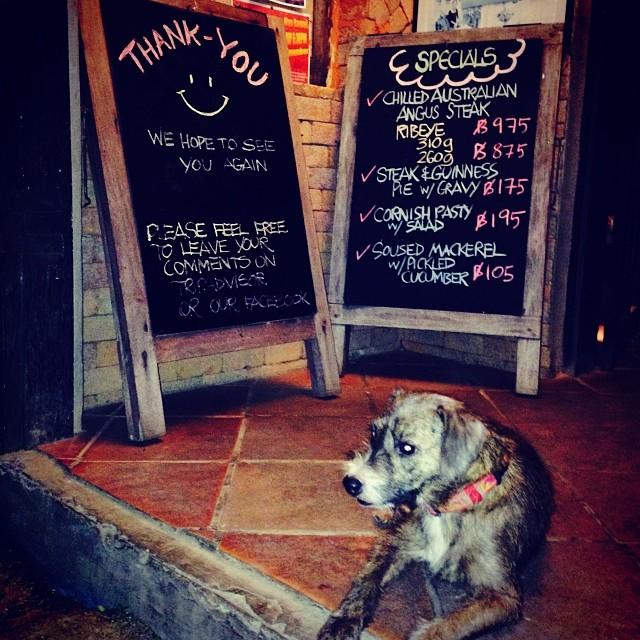 THANK-YOU
WE HOPE TO SEE
YOU AGAIN
PLEASE FEEL FREE
TO LEAVE YOUR
COMMENTS ON
OR OUR FACEBOOK
SPECIALS
✓ CHILLED AUSTRALIAN
ANGUS STEAK
RIBEYE
310g ฿975
260g ฿875
✓ STEAK & GUINNESS
PIE W/ GRAVY ฿175
✓ CORNISH PASTY
W/ SALAD ฿195
✓ SOUSED MACKEREL
W/ PICKLED
CUCUMBER ฿105